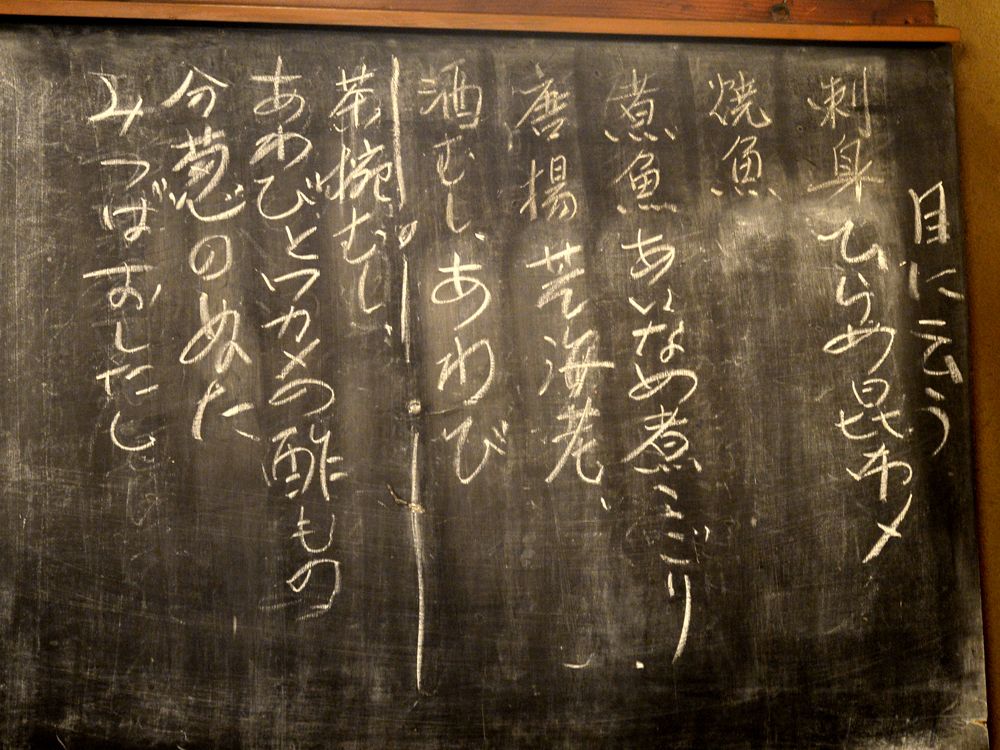 目に云う
刺身 ひらめ昆布〆
焼魚
煮魚 あいなめ煮こごり
唐揚 芝海老、
酒むし、あわび
茶碗むし、
あわびとワカメの酢もの
分葱のぬた
みつばおしたし